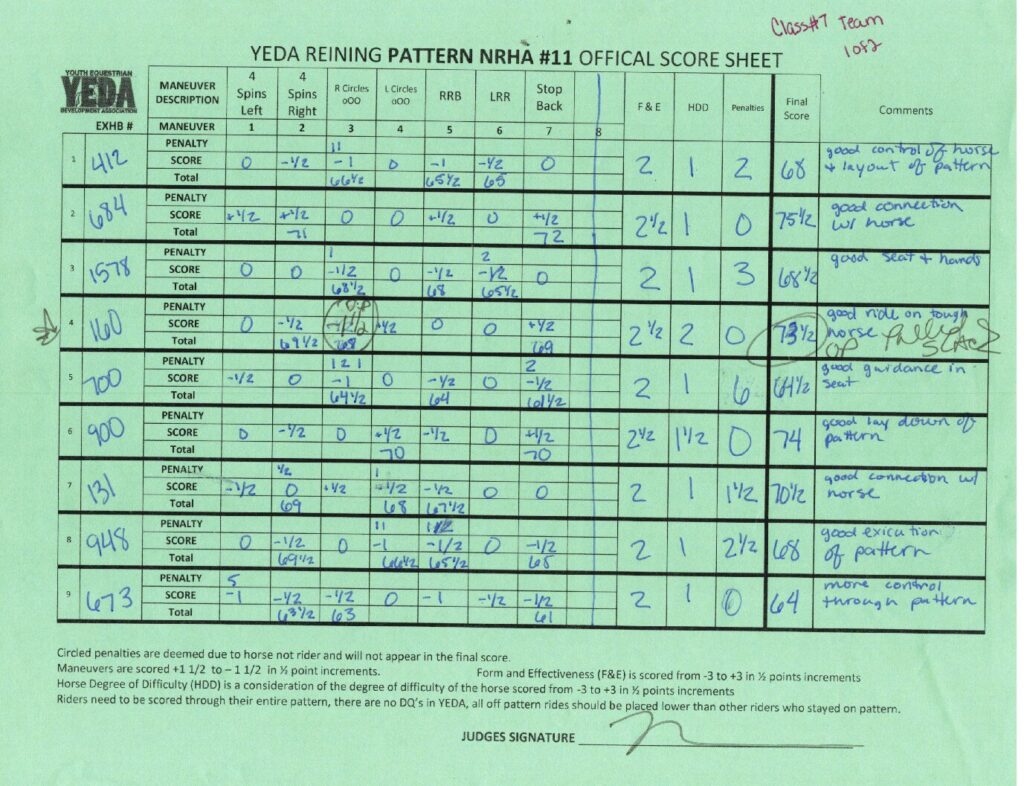 Class#7 Team
1 of 2
YEDA REINING PATTERN NRHA #11 OFFICAL SCORE SHEET
YOUTH EQUESTRIAN
YEDA
DEVELOPMENT ASSOCIATION
EXHB #
MANEUVER DESCRIPTION 4 Spins Left 4 Spins Right R Circles oOO L Circles oOO RRB LRR Stop Back F & E HDD Penalties Final Score Comments
MANEUVER 1 2 3 4 5 6 7 8
PENALTY 11
1 412 SCORE 0 -1/2 -1 0 -1 -1/2 0 2 1 2 68 good control of horse + layout of pattern
Total 66 1/2 65 1/2 65
PENALTY
2 684 SCORE +1/2 +1/2 0 0 +1/2 0 +1/2 2 1/2 1 0 75 1/2 good connection w/ horse
Total 71 72
PENALTY 1 2
3 1578 SCORE 0 0 -1/2 0 -1/2 -1/2 0 2 1 3 68 1/2 good seat + hands
Total 68 1/2 68 65 1/2
PENALTY OP
4 160 SCORE 0 -1/2 +1/2 0 0 +1/2 2 1/2 2 0 73 1/2 good ride on tough horse OP
Total 69 1/2 68 69
PENALTY 1 2 1 2
5 700 SCORE -1/2 0 -1 0 -1/2 0 -1/2 2 1 6 64 1/2 good guidance in seat
Total 64 1/2 64 61 1/2
PENALTY
6 900 SCORE 0 -1/2 0 +1/2 -1/2 0 +1/2 2 1/2 1 1/2 0 74 good lay down of pattern
Total 70 70
PENALTY 1/2 1
7 131 SCORE -1/2 0 +1/2 -1/2 -1/2 0 0 2 1 1 1/2 70 1/2 good connection w/ horse
Total 69 68 67 1/2
PENALTY 11 1/2
8 948 SCORE 0 -1/2 0 -1 -1/2 0 -1/2 2 1 2 1/2 68 good exicution of pattern
Total 69 1/2 66 1/2 65 1/2 65
PENALTY 5
9 673 SCORE -1 -1/2 -1/2 0 -1 -1/2 -1/2 2 1 0 64 more control through pattern
Total 63 1/2 63 61
Circled penalties are deemed due to horse not rider and will not appear in the final score.
Maneuvers are scored +1 1/2 to – 1 1/2 in ½ point increments. Form and Effectiveness (F&E) is scored from -3 to +3 in ½ points increments
Horse Degree of Difficulty (HDD) is a consideration of the degree of difficulty of the horse scored from -3 to +3 in ½ points increments
Riders need to be scored through their entire pattern, there are no DQ's in YEDA, all off pattern rides should be placed lower than other riders who stayed on pattern.
JUDGES SIGNATURE